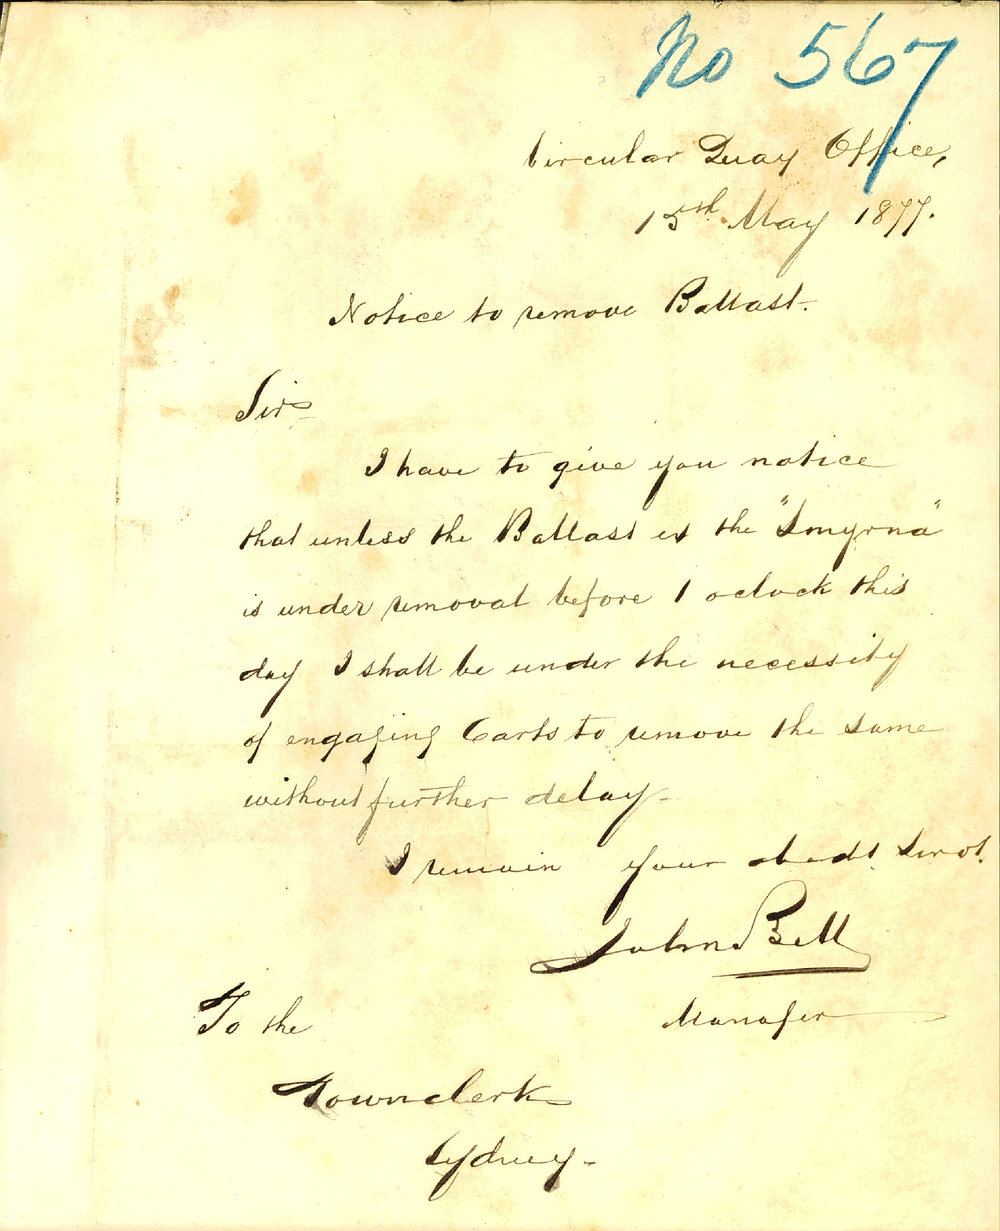 No 567
Circular Quay Office,
15th May 1877.
Notice to remove Ballast.
Sir
I have to give you notice
that unless the Ballast ex the "Smyrna"
is under removal before 1 oclock this
day I shall be under the necessity
of engaging Carts to remove the same
without further delay.
I remain your obedt. Servt.
John Bell
Manager
To the
Townclerk
Sydney-